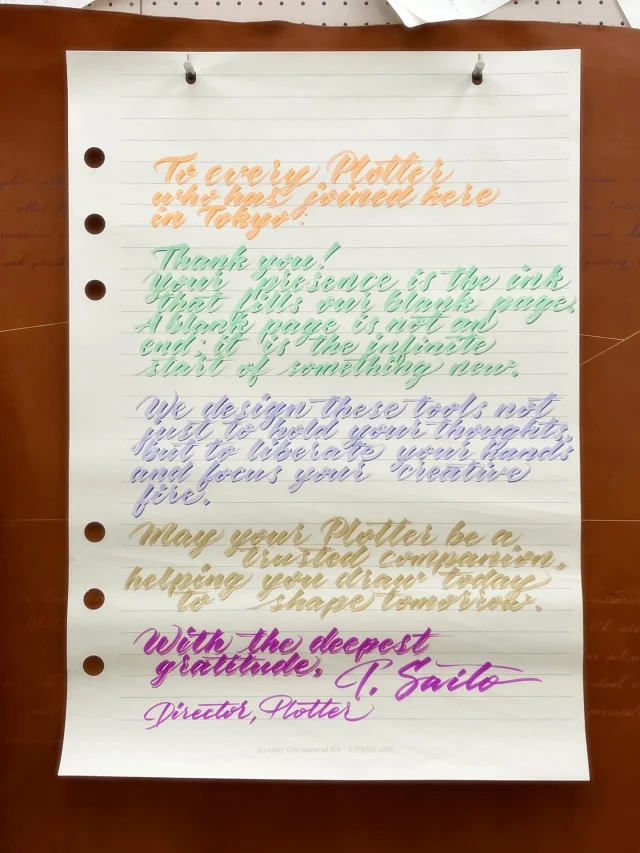 To every Plotter
who has joined here
in Tokyo:
Thank you!
Your presence is the ink
that fills our blank page.
A blank page is not an
end; it is the infinite
start of something new.
We design these tools not
just to hold your thoughts,
but to liberate your hands
and focus your creative
fire.
May your Plotter be a
trusted companion,
helping you draw today
to shape tomorrow.
With the deepest
gratitude,
T. Saito
Director, Plotter